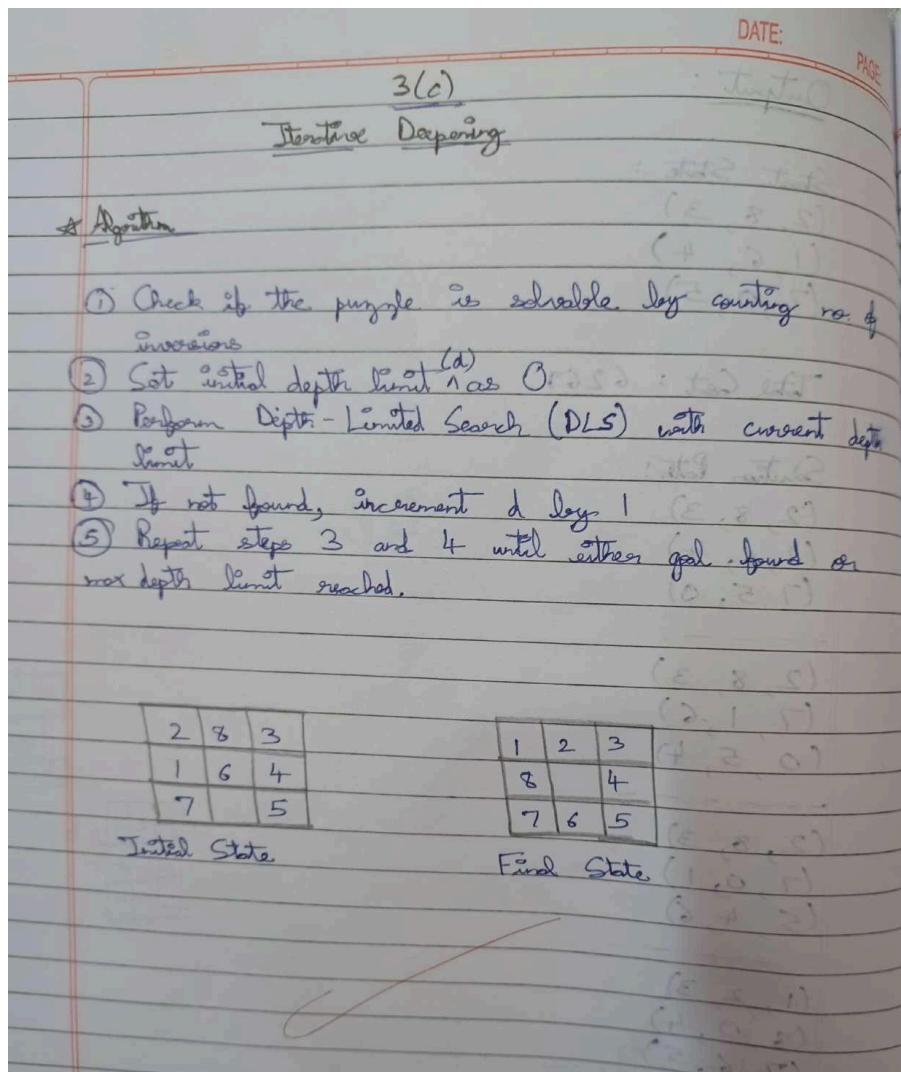 DATE:
PAGE
3(c)
Iterative Deepening
☆ Algorithm
① Check if the puzzle is solvable by counting no. of
inversions
② Set initial depth limit ^(d) as 0.
③ Perform Depth-Limited Search (DLS) with current depth
limit
④ If not found, increment d by 1
⑤ Repeat steps 3 and 4 until either goal found or
max depth limit reached.
2 8 3
1 6 4
7 5
Initial State
1 2 3
8 4
7 6 5
Final State